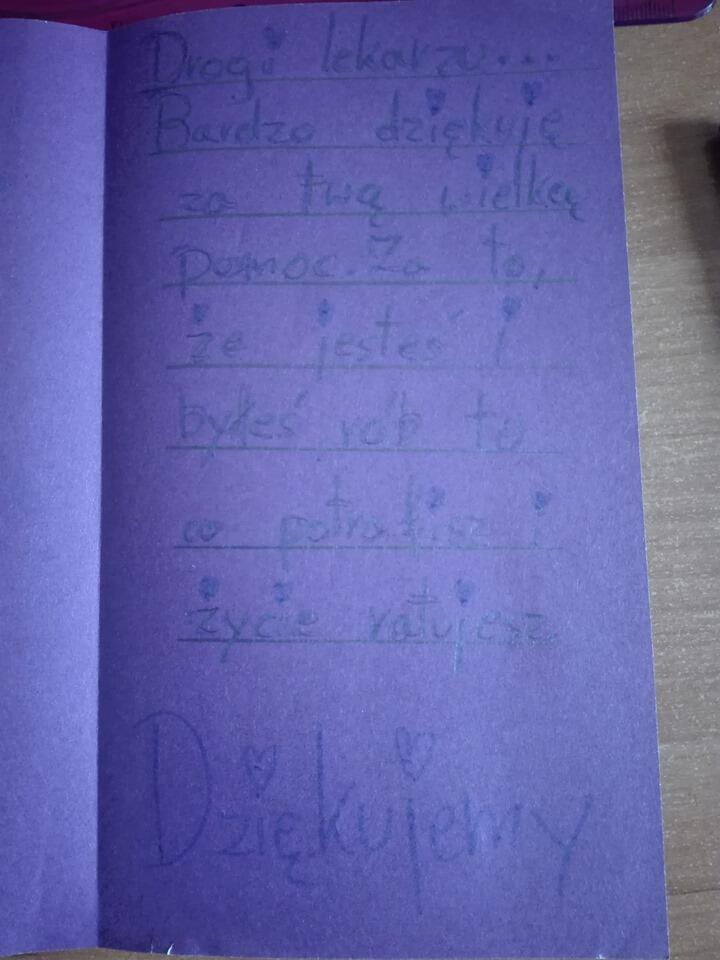 Drogi lekarzu...
Bardzo dziękuję
za twą wielką
pomoc. Za to,
że jesteś i
byłeś rób to
co potrafisz i
życie ratujesz
Dziękujemy